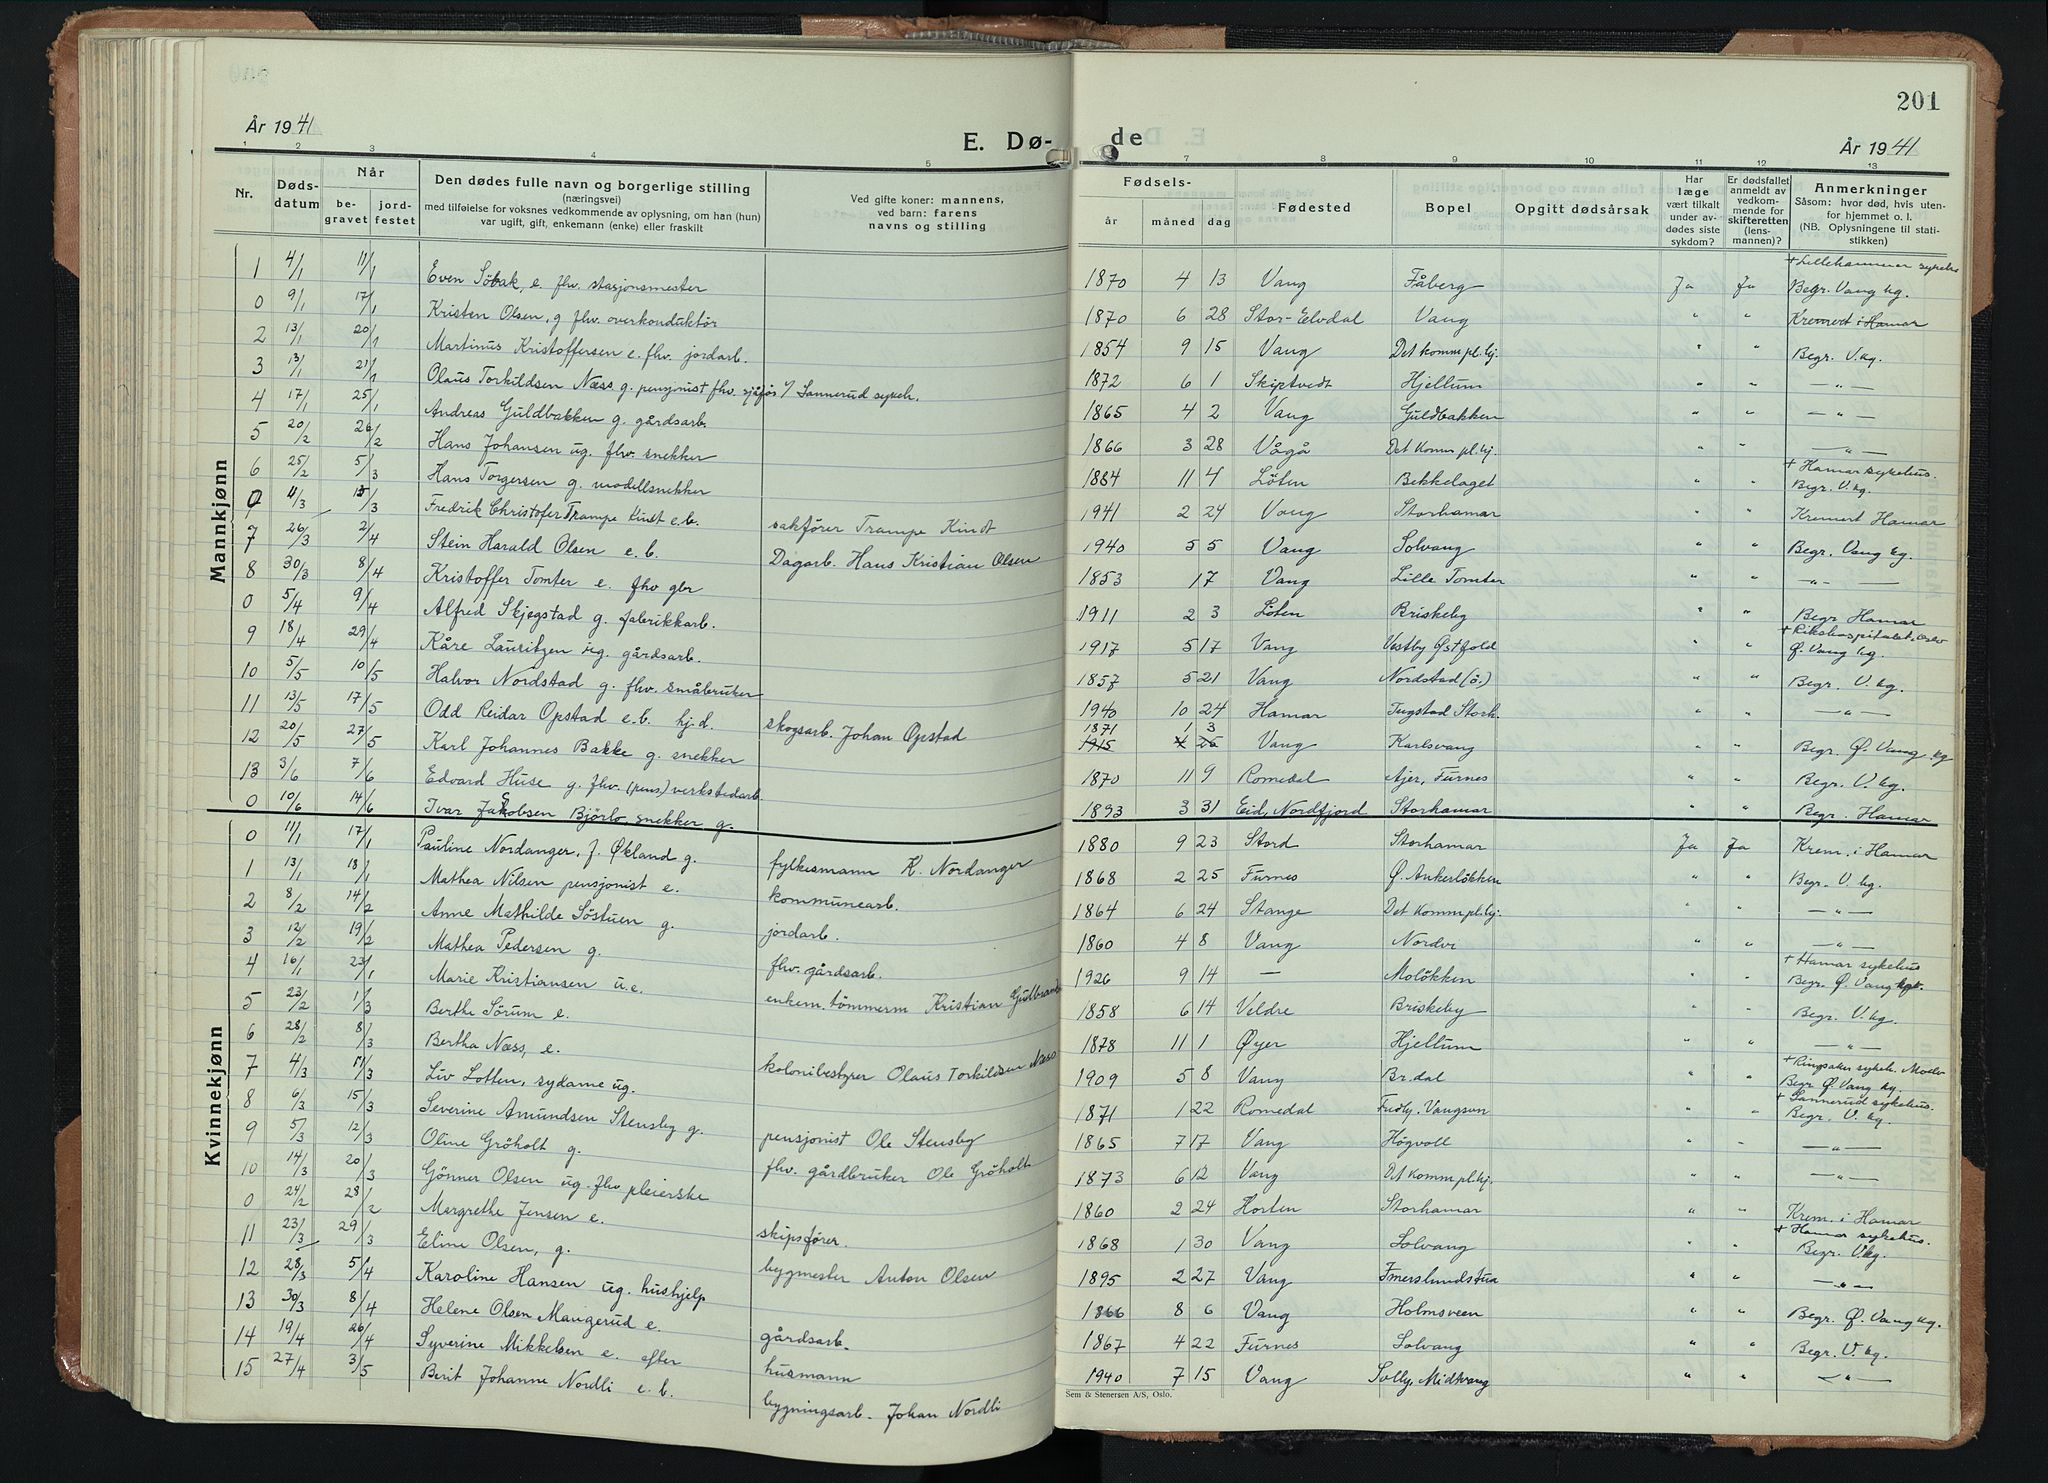 201
År 1941
E. Dø-
de
År 1941
1 2 3 4 5 7 8 9 10 11 12 13
Nr. Dødsdatum Når begravet jordfestet
Den dødes fulle navn og borgerlige stilling
(næringsvei)
med tilføielse for voksnes vedkommende av oplysning, om han (hun)
var ugift, gift, enkemann (enke) eller fraskilt
Ved gifte koner: mannens,
ved barn: farens
navns og stilling
Fødsels- år måned dag
Fødested
Bopel
Opgitt dødsårsak
Har læge vært tilkalt under avdødes siste sykdom?
Er dødsfallet anmeldt av vedkommende for skifteretten (lensmannen)?
Anmerkninger
Såsom: hvor død, hvis utenfor hjemmet o. l.
(NB. Oplysningene til statistikken)
Mannkjønn
1 4/1 11/1 Even Söbak, e. fhv. stasjonsmester 1870 4 13 Vang Fåberg Ja Ja + Lillehammer sykehs Begr. Vang kg.
0 9/1 17/1 Kristen Olsen, g fhv. overkonduktör 1870 6 28 Stor-Elvdal Vang " " Kremert i Hamar
2 13/1 20/1 Martinus Kristoffersen e. fhv. jordarb. 1854 9 15 Vang Det komm pl. hj. " " Begr. V. kg.
3 13/1 21/1 Olaus Torkildsen Næss g. pensjonist fhv. sjåfør v/ Sannerud sykeh. 1872 6 1 Skiptvedt Hjellum " " — " —
4 17/1 25/1 Andreas Guldbakken g. gårdsarb. 1865 4 2 Vang Guldbakken " " — " —
5 20/2 26/2 Hans Johansen ug. fhv. snekker 1866 3 28 Vågå Det komm pl. hj. " " — " —
6 25/2 5/3 Hans Torgersen g. modellsnekker 1884 11 4 Löten Bekkelaget " " + Hamar sykehus. Begr. V. kg.
0 4/3 15/3 Fredrik Christofer Trampe Kindt e.b. sakförer Trampe Kindt 1941 2 24 Vang Storhamar " " Kremert Hamar
7 26/3 2/4 Stein Harald Olsen e. b. Dagarb. Hans Kristian Olsen 1940 5 5 Vang Solvang " " Begr. Vang kg.
8 30/3 8/4 Kristoffer Tomter e. fhv gbr 1853 1 7 Vang Lille Tomter " " — " —
0 5/4 9/4 Alfred Skjegstad g. fabrikkarb. 1911 2 3 Löten Briskeby " " Begr Hamar
9 18/4 29/4 Kåre Lauritzen ug. gårdsarb. 1917 5 17 Vang Vestby Østfold " " + Rikshospitalet. Oslo Ø. Vang kg.
10 5/5 10/5 Halvor Nordstad g. fhv. småbruker 1857 5 21 Vang Nordstad (ö.) " " Begr. V. kg.
11 13/5 17/5 Odd Reidar Opstad e.b. hj.d. skogsarb. Johan Opstad 1940 10 24 Hamar Tugstad Storh. " " — " —
12 20/5 27/5 Karl Johannes Bakke g. snekker 1871 1 3 1915 4 26 Vang Karlsvang " " Begr. Ø. Vang kg
13 3/6 7/6 Edvard Huse g. fhv. (pens) verkstedarb. 1870 11 9 Romedal Ajer, Furnes " " Begr. V. kg.
0 10/6 14/6 Ivar Jakobsen Björlo, snekker g. 1893 3 31 Eid, Nordfjord Storhamar " " Begr. Hamar
Kvinnekjønn
0 11/1 17/1 Pauline Nordanger, f. Økland g. fylkesmann K. Nordanger 1880 9 23 Stord Storhamar Ja Ja Krem. i Hamar
1 13/1 18/1 Mathea Nilsen pensjonist e. kommunearb. 1868 2 25 Furnes Ø. Ankerlökken " " Begr. V. kg.
2 8/2 14/2 Anne Mathilde Söstuen g. jordarb. 1864 6 24 Stange Det komm pl. hj. " " — " —
3 12/2 19/2 Mathea Pedersen g. fhv. gårdsarb. 1860 4 8 Vang Nordvi " " — " —
4 16/1 23/1 Marie Kristiansen u.e. enkem. tömmerm Kristian 1926 9 14 — Molökken " " + Hamar sykehus Begr. Ø. Vang kg.
5 23/2 1/3 Berthe Sörum e. 1858 6 14 Veldre Briskeby " Begr. V. kg.
6 28/2 8/3 Bertha Næss, e. kolonibestyrer Olaus Torkildsen Næss 1878 11 1 Øyer Hjellum " " — " —
7 4/3 11/3 Liv Lotten, sydame ug. 1909 5 8 Vang Br.dal " " + Ringsaker sykeh. Moelv Begr Ø. Vang kg.
8 6/3 15/3 Severine Amundsen Stensby g. pensjonist Ole Stensby 1871 1 22 Romedal Fredly. Vangsvn " " + Sannerud sykehus. Begr. V. kg.
9 5/3 12/3 Oline Gröholt g. fhv. gårdbruker Ole Gröholt 1865 7 17 Vang Högvoll " " — " —
10 14/3 20/3 Gönner Olsen ug. fhv pleierske 1873 6 12 Vang Det komm pl. hj. " " — " —
0 24/2 28/2 Margrethe Jensen e. skipsförer. 1860 2 24 Horten Storhamar " " Krem. i Hamar
11 23/3 29/3 Eline Olsen, g. bygmester Anton Olsen 1868 1 30 Vang Solvang " " + Hamar sykehus. Begr. V. kg.
12 28/3 5/4 Karoline Hansen ug. hushjelp 1895 2 27 Vang Imerslundstua " " — " —
13 30/3 8/4 Helene Olsen Maugerud e. gårdsarb. 1866 8 6 Vang Holmsveen " " Begr. Ø. Vang kg.
14 19/4 26/4 Syverine Mikkelsen e. efter husmann 1867 4 22 Furnes Solvang " " Begr. V. kg.
15 27/4 3/5 Berit Johanne Nordli e. b. bygningsarb. Johan Nordli 1940 7 15 Vang Solly, Midtvang " " — " —
Sem & Stenersen A/S, Oslo.